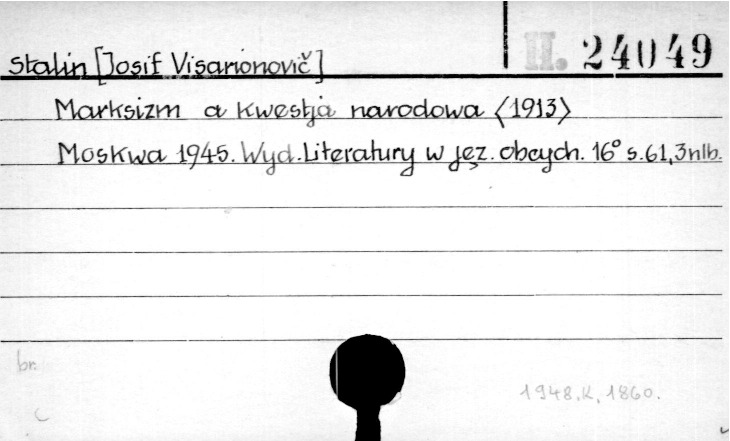 II. 24049
Stalin [Josif Visarionovič]
Marksizm a kwestja narodowa <1913>
Moskwa 1945. Wyd. Literatury w jęz. obcych. 16° s. 61, 3 nlb.
br.
1948.K.1860.